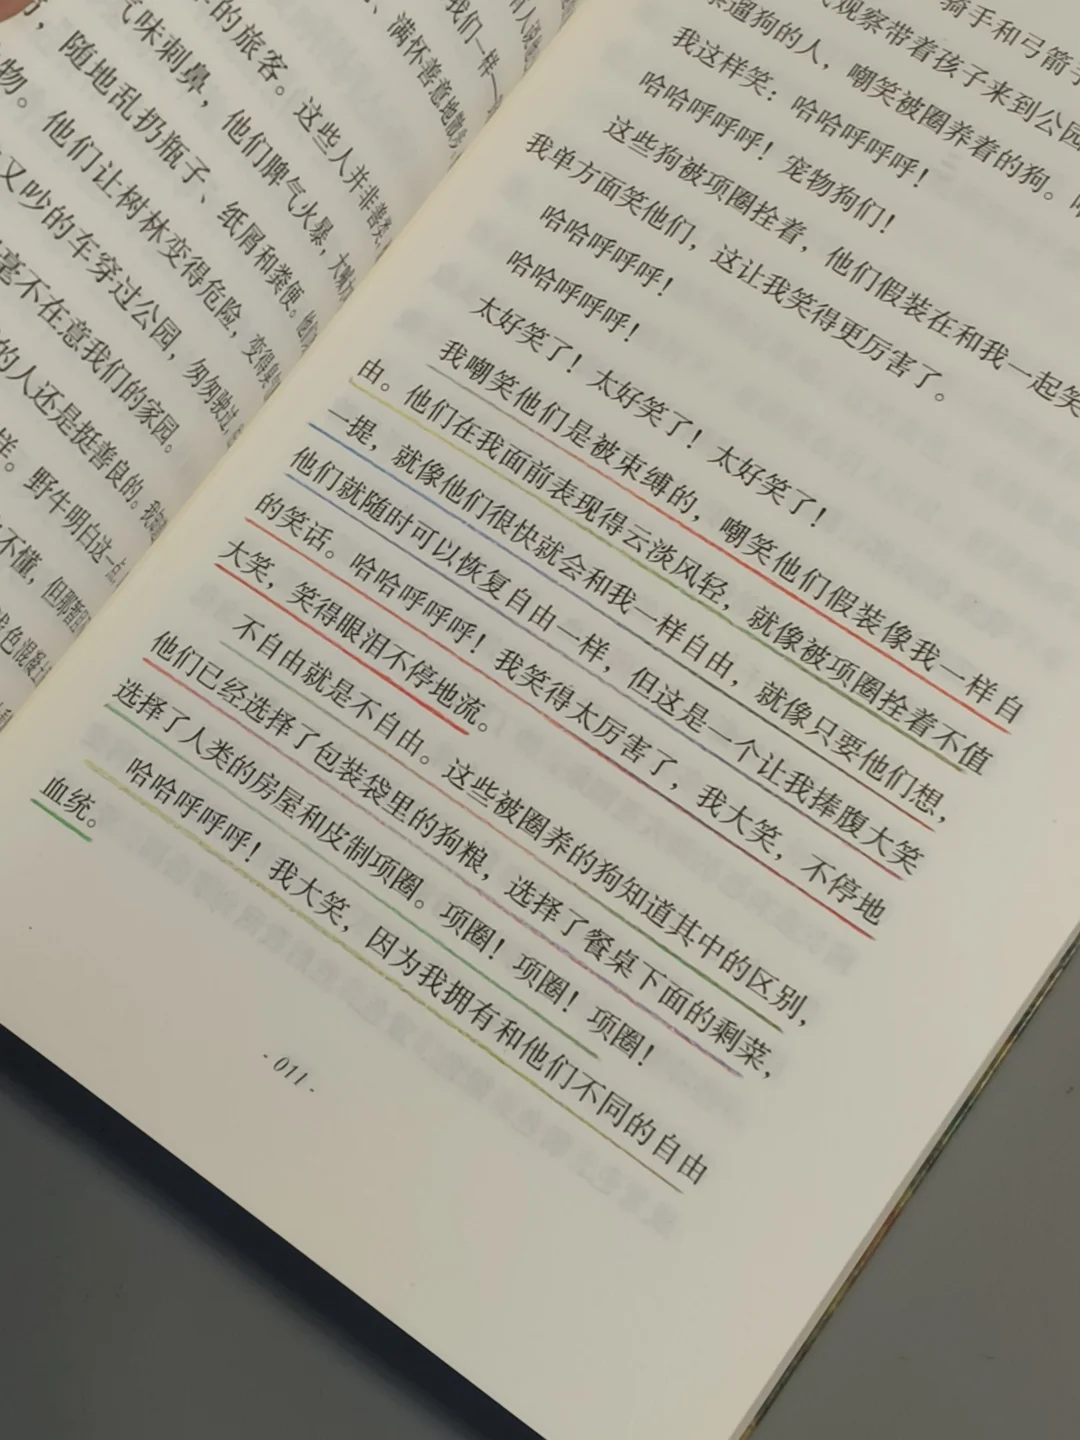 的旅客。这些人并非善类，
气味刺鼻，他们脾气火暴，大喊
随地乱扔瓶子、纸屑和粪便。他们
物。他们让树林变得危险，变得臭
又吵的车穿过公园，匆匆驶过，
毫不在意我们的家园。
的人还是挺善良的。我
样。野牛明白这一点，
不懂，但那
色混凝土
我们一样一
满怀善意地散
骑手和弓箭手
观察带着孩子来到公园
遛狗的人，嘲笑被圈养着的狗。
我这样笑：哈哈呼呼呼！
哈哈呼呼呼！宠物狗们！
这些狗被项圈拴着，他们假装在和我一起笑
我单方面笑他们，这让我笑得更厉害了。
哈哈呼呼呼！
哈哈呼呼呼！
太好笑了！太好笑了！太好笑了！
我嘲笑他们是被束缚的，嘲笑他们假装像我一样自
由。他们在我面前表现得云淡风轻，就像被项圈拴着不值
一提，就像他们很快就会和我一样自由，就像只要他们想，
他们就随时可以恢复自由一样，但这是一个让我捧腹大笑
的笑话。哈哈呼呼呼！我笑得太厉害了，我大笑，不停地
大笑，笑得眼泪不停地流。
不自由就是不自由。这些被圈养的狗知道其中的区别，
他们已经选择了包装袋里的狗粮，选择了餐桌下面的剩菜，
选择了人类的房屋和皮制项圈。项圈！项圈！项圈！
哈哈呼呼呼！我大笑，因为我拥有和他们不同的自由
血统。
- 011 -